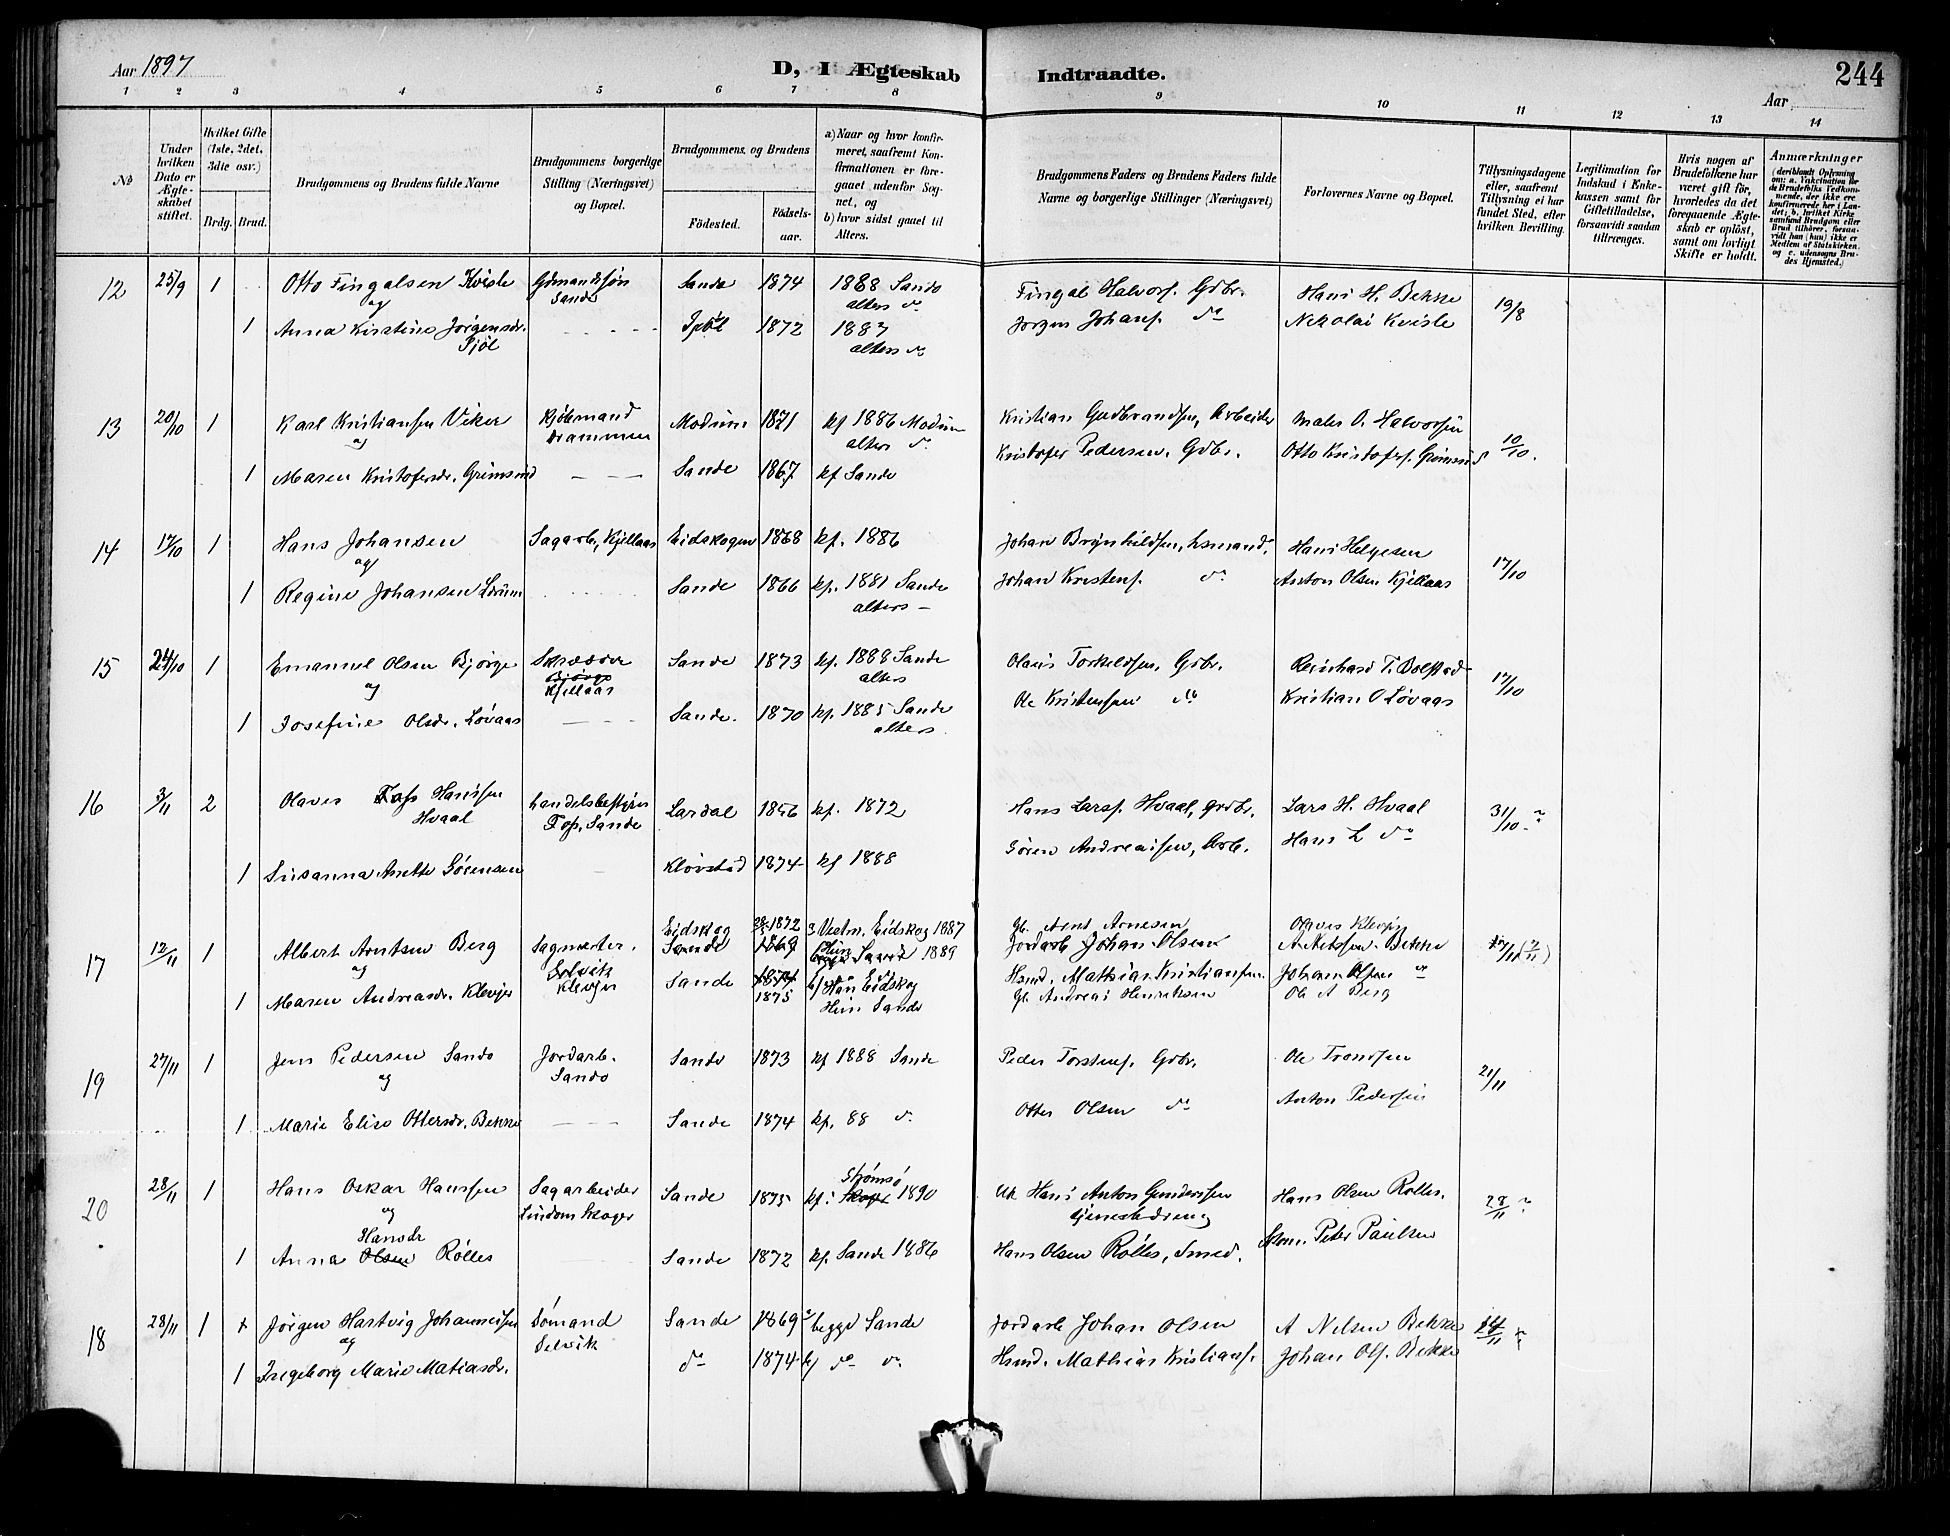 Aar 1897
D, I Ægteskab
Indtraadte.
244
Aar
1 2 3 4 5 6 7 8 9 10 11 12 13 14
No
Under hvilken Dato er Ægteskabet stiftet.
Hvilket Gifte (1ste, 2det, 3die osv.)
Brdg. Brud.
Brudgommens og Brudens fulde Navne
Brudgommens borgerlige Stilling (Næringsvei) og Bopæl.
Brudgommens og Brudens
Födested.
Födselsaar.
a) Naar og hvor konfirmeret, saafremt Konfirmationen er foregaaet udenfor Sognet, og
b) hvor sidst gaaet til Alters.
Brudgommens Faders og Brudens Faders fulde Navne og borgerlige Stillinger (Næringsvei)
Forlovernes Navne og Bopæl.
Tillysningsdagene eller, saafremt Tillysning ei har fundet Sted, efter hvilken Bevilling.
Legitimation for Indskud i Enkekassen samt for Giftetilladelse, forsaavidt saadan tiltrænges.
Hvis nogen af Brudefolkene har været gift för, hvorledes da det foregaaende Ægteskab er oplöst, samt om lovligt Skifte er holdt.
Anmærkninger (deriblandt Oplysning om: a. Vakcination for de Brudefolks Vedkommende, der ikke ere konfirmerede her i Landet; b. hvilket Kirkesamfund Brudgom eller Brud tilhörer, forsaavidt han (hun) ikke er Medlem af Statskirken, og c. udensogns Brudes Hjemsted.)
12 25/9 1 Otto Fingalsen Kvisle Gdmandssøn Sande 1874 1888 Sande Fingal Halvors. Gdbr. Hans H. Bekke 19/8
og Sande alters do
1 Anna Kirstine Jørgensdr. 1872 1887 Jørgen Johans. do Nikolai Kvisle
alters do
13 20/10 1 Karl Kristiansen Viker Kjøbmand Modum 1871 kf 1886 Modum Kristian Gudbrandsen, Arbeider Maler O. Halvorsen 10/10.
og Drammen alters do
1 Maren Kristofersdr. Grimsrud Sande 1867 kf Sande Kristofer Pedersen. Gdbr. Otto Kristofers. Grimsrud
14 17/10 1 Hans Johansen Sagarb, Kjellaas Eidskogen 1868 kf. 1886 Johan Brynhildsen, Hsmand. Hans Helgesen 17/10
og
1 Regine Johansen Sande 1866 kf. 1881 Sande Johan Kristens. do Anton Olsen Kjellaas
alters
15 24/10 1 Emanuel Olsen Bjørge Skrædder Sande 1873 kf. 1888 Sande Olaus Torkildsen, Gdbr. Reinhard T. Bolstad 17/10
og Bjørge Kjellaas alters
1 Josefine Olsdr. Løvaas Sande. 1870 kf. 1885 Sande Ole Kristensen do Kristian O Løvaas
alters
16 3/11 2 Olaves Hansen Hvaal Handelsbestyrer Lardal 1856 kf. 1872 Hans Lars. Hvaal, Gdbr. Lars H. Hvaal 31/10
Sande
1 Susanna Anette Sørensen 1874 kf 1888 Søren Andreassen, Arb. Hans L do
17 12/11 1 Albert Arntsen Berg Sagmester. Eidskog Sande 1872 1869 Eidskog 1887 Gb. Arnt Arnesen Olaves Klevjer
og Selvik Hun Sande 1889 Jordarb Johan Olsen A Nilssen. Bekke
1 Maren Andreasdr. Klevjer Klevjer Sande 1874 1875 b) Han Eidskog Hsmd. Mathias Kristiansen. Johan Olsen do
Hun Sande Gb. Andreas Henriksen Ole A Berg
19 27/11 1 Jens Pedersen Sando Jordarb. Sande 1873 kf 1888 Sande Peder Torstens. Gdbr. Ole Tronsen 21/11
og Sando
1 Marie Elise Ottersdr. Bekke Sande 1874 kf. 88 do Otter Olsen do Anton Pedersen
20 28/11 1 Hans Oskar Hanssen Sagarbeider Sande 1875 kf: Strømsø 1890 Hans Anton Gundersen Hans Olsen Rolles. 28/11
og Lindom Skoger tjenestedreng
1 Anna Olsen Hansdr Rølles Sande 1872 kf. Sande 1886 Hans Olsen Rølles, Smed. Peter Paulsen
18 28/11 1 + Jørgen Hartvig Johannessen Sømand Sande 1869 a begge Sande Jordarb Johan Olsen A Nilsen Bekke 14/11
og Selvik
1 Ingeborg Marie Matiasdr. do 1874 b) do do Hsmd. Mathias Kristians. Johan Ols. Bekke